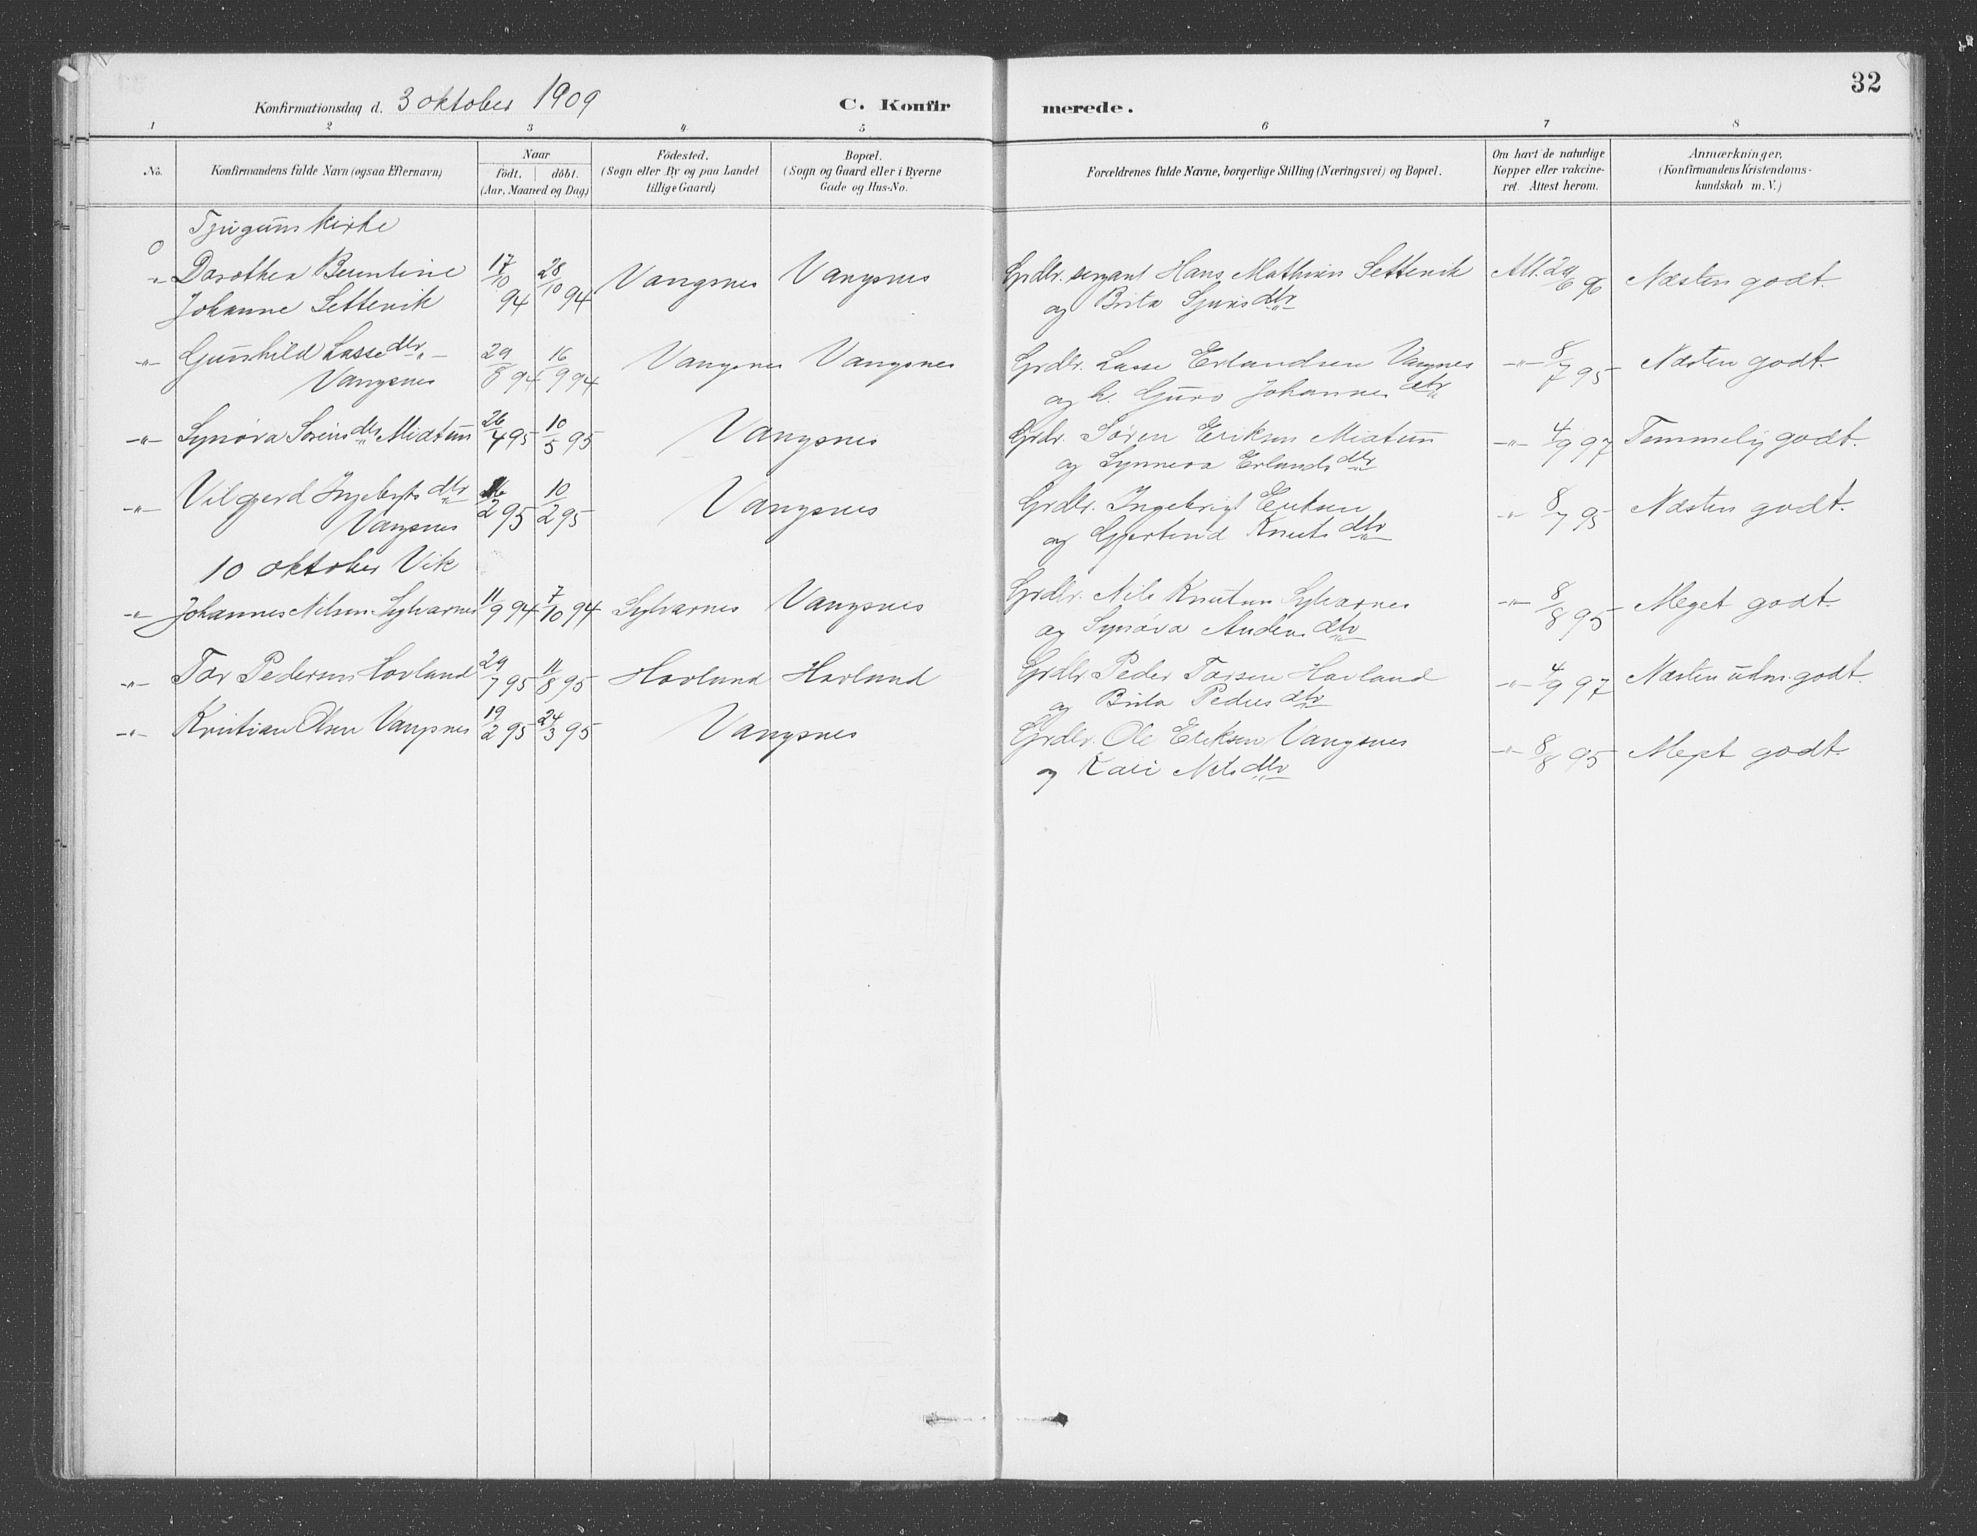 32
Konfirmationsdag d. 3 oktober 1909 C. Konfir merede.
1 2 3 4 5 6 7 8
No. Konfirmandens fulde Navn (ogsaa Efternavn) Naar født. døbt. (Aar, Maaned og Dag) Fødested. (Sogn eller By og paa Landet tillige Gaard) Bopæl. (Sogn og Gaard eller i Byerne Gade og Hus-No.
Forældrenes fulde Navne, borgerlige Stilling (Næringsvei) og Bopæl. Om havt de naturlige Kopper eller vakcineret. Attest herom. Anmærkninger, (Konfirmandens Kristendomskundskab m. V.)
Tjugum kirke
0
-"- Dorothea Berntine 17/10 94 28/10 94 Vangsnes Vangsnes Grdbr. sergant Hans Mathias Settevik Att. 29/6 96 Næsten godt.
Johanne Settevik og Brita Sjursdtr
-"- Gunhild Lassedtr 29/8 94 16/9 94 Vangsnes Vangsnes Grdbr. Lasse Erlandsen Vangsnes -"- 8/7 95 Næsten godt.
Vangsnes og h. Guro Johannesdtr
-"- Synøva Sørensdtr Midtun 26/4 95 10/5 95 Vangsnes Grdbr. Søren Eriksen Midtun -"- 4/9 97 Temmelig godt.
og Synneva Erlandsdtr
-"- Vilgerd Ingebrigtsdtr 2 95 10/2 95 Vangsnes Grdbr. Ingebrigt Eriksen -"- 8/7 95 Næsten godt.
Vangsnes og Gjertrud Knutsdtr
10 oktober Vik
-"- Johannes Nilsen Sylvarnes 11/9 94 7/10 94 Sylvarnes Vangsnes Grdbr. Nils Knutsen Sylvarnes -"- 8/8 95 Meget godt.
og Synøva Andersdtr
-"- Tor Pedersen Hovland 29/7 95 11/8 95 Hovland Hovland Grdbr Peder Torsen Hovland -"- 4/9 97 Næsten udm. godt.
og Brita Pedersdtr
-"- Kristian Olsen Vangsnes 19/2 95 24/3 95 Vangsnes Grdbr. Ole Eriksen Vangsnes -"- 8/8 95 Meget godt.
og Kari Nilsdtr